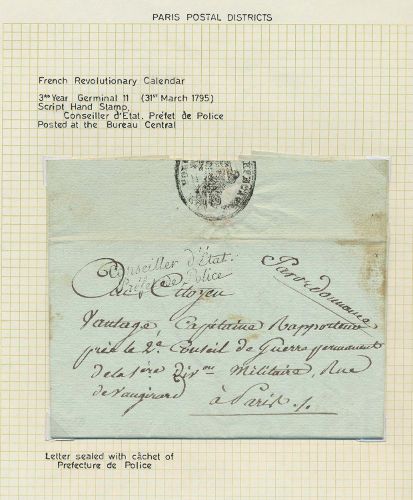 PARIS POSTAL DISTRICTS
French Revolutionary Calendar
3me Year Germinal 11 (31st March 1795)
Script Hand Stamp.
Conseiller d'Etat, Préfet de Police
Posted at the Bureau Central
Conseiller d'Etat.
Préfet de Police
Au Citoyen
Vantage, Capitaine Rapporteur
près le 2e Conseil de Guerre permanent
de la 1ère Divon Militaire, Rue
de Vaugirard
à Paris
Letter sealed with câchet of
Prefecture de Police